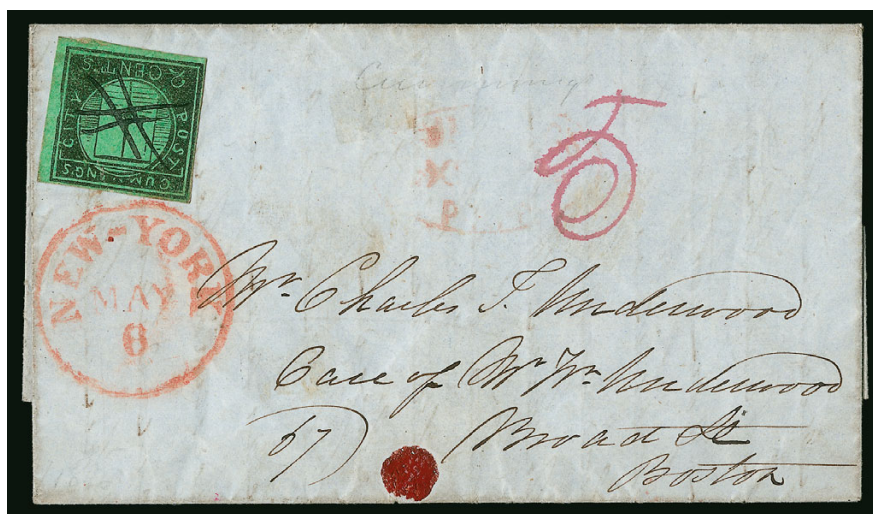 Cummings
CUMMINGS CITY POST
2 CENTS
5
NEW-YORK
MAY
6
Mr. Charles F. Underwood
Care of Mr Wm. Underwood
67 Broad St
Boston